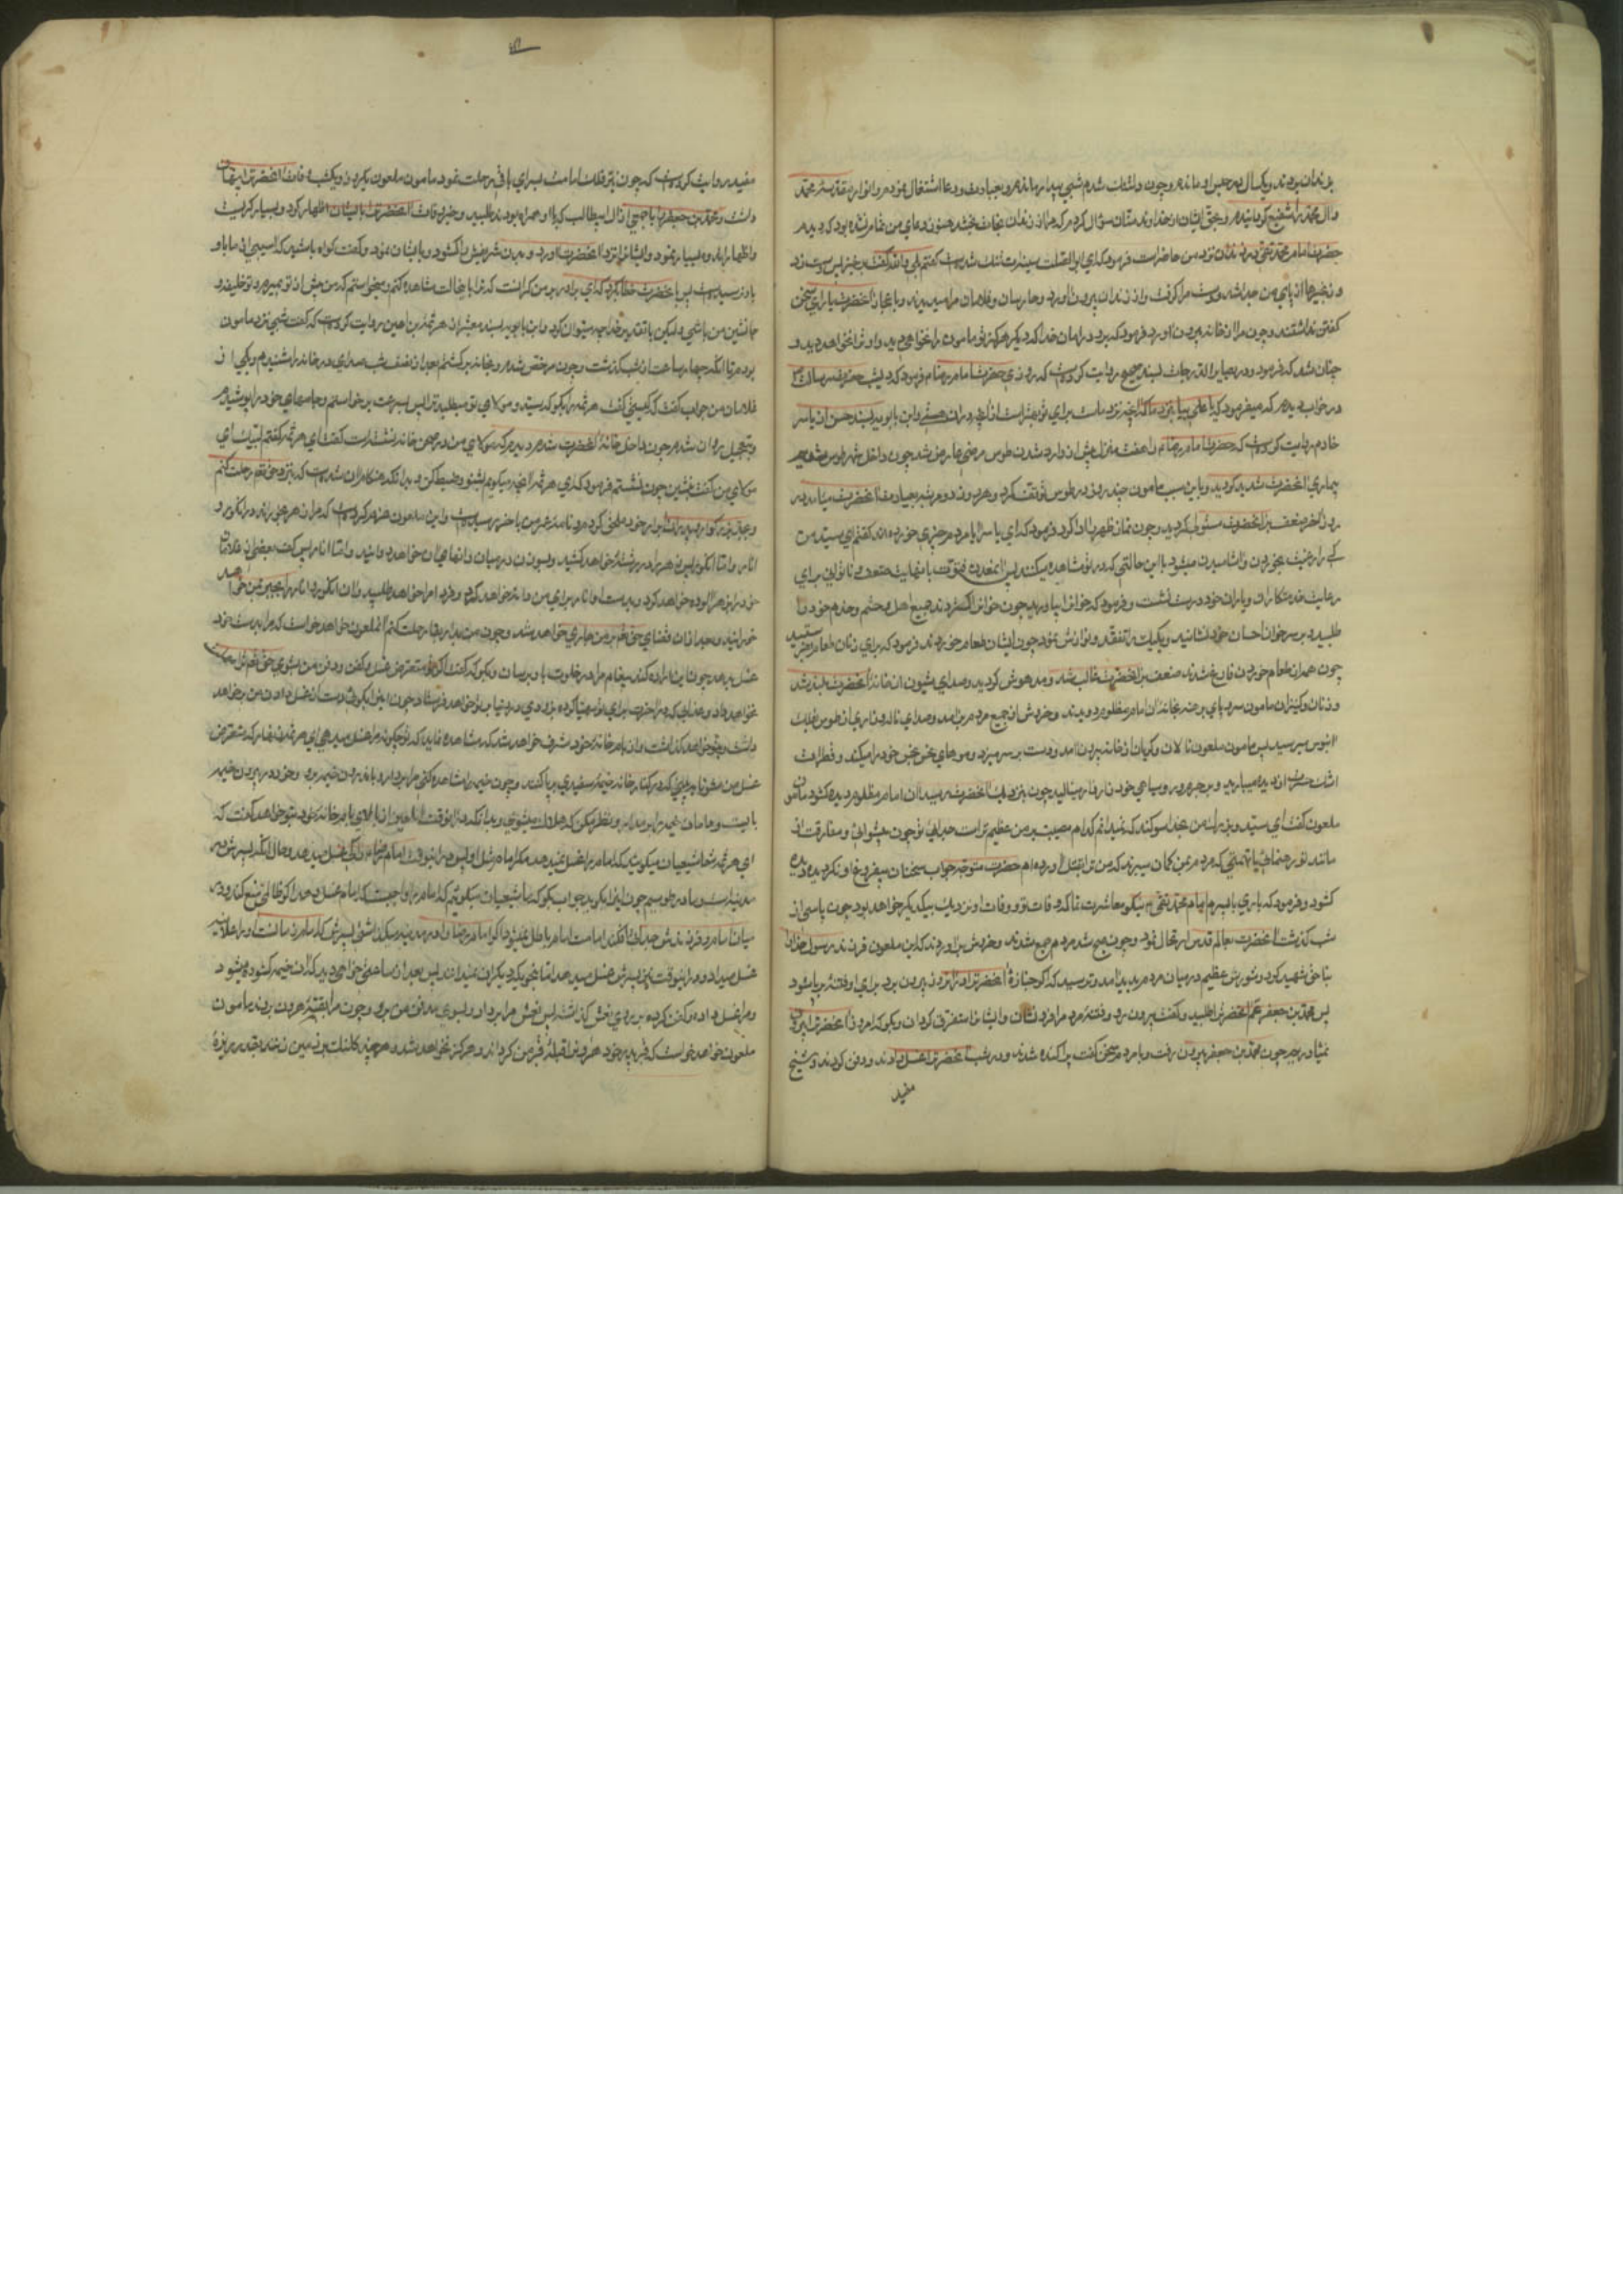 بزندان بردند و یکسال در حبس او ماندم و چون دلتنگ شدم شبی بیدار ماندم و بعبادت و دعا اشتغال نمودم و انوار مقدسه محمد
و آل محمد را شفیع گردانیدم و بحق ایشان از خداوند منان سؤال کردم که مرا از زندان نجات بخشد هنوز دعای من تمام نشده بود که دیدم
حضرت امام محمد تقی در زندان نزد من حاضر است فرمود که ای ابو الصلت سینه‌ات تنگ شده است گفتم بلی والله گفت برخیز پس دست زد
و زنجیرها از پای من جدا شد و دست مرا گرفت و از زندان بیرون آورد و حارسان و غلامان مرا میدیدند و باعجاز آنحضرت یارای سخن
گفتن نداشتند و چون مرا از خانه بیرون آورد فرمود که برو در امان خدا که دیگر هرگز تو مامون را نخواهی دید و او ترا نخواهد دید و
چنان شد که فرمود و در بصایر الدرجات بسند صحیح روایت کرده است که روزی حضرت امام رضا فرمود که دیشب حضرت رسالت
در خواب دیدم که میفرمود که یا علی بیا بنزد ما که آنچه نزد ماست برای تو بهتر است از آنچه در آن هستی و ابن بابویه بسند حسن از یاسر
خادم روایت کرده است که حضرت امام رضا را هفت منزل پیش از وارد شدن طوس مرضی عارض شد چون داخل شهر طوس شدیم
بیماری آنحضرت شدید گردید و باین سبب مامون چند روز در طوس توقف کرد و هر روز دو مرتبه بعیادت آنحضرت می‌آمد در
روز آخر ضعف بر آنحضرت مستولی گردید و چون نماز ظهر را ادا کرد فرمود که ای یاسر آیا مردم چیزی خورده‌اند گفتم ای سید من
کی را رغبت بخوردن و آشامیدن میشود با این حالتی که در تو مشاهده میکنند پس آنمعدن فتوت با نهایت ضعف و ناتوانی برای
رعایت خدمتکاران و یاران خود درست نشست و فرمود که خوان را بیاورید چون خوان را گستردند جمیع اهل و حشم و خدم خود را
طلبید و بر سر خوان احسان خود نشانید و یک یک را تفقد و نوازش نمود چون ایشان طعام خوردند فرمود که برای زنان طعام بفرستید
چون همه از طعام خوردن فارغ شدند ضعف بر آنحضرت غالب شد و مدهوش گردید و صدای شیون از خانه آنحضرت بلند شد
و زنان و کنیزان مامون سر و پای برهنه بخانه آن امام مظلوم دویدند و خروش از جمیع مردم برآمد و صدای ناله و زاری از طوس بفلک
آبنوس میرسید پس مامون ملعون نالان و گریان از خانه بیرون آمد و دست بر سر میزد و موهای نحس خود را میکند و قطرات
اشک حسرت از دیده میبارید و بر جرم و روسیاهی خود زار زار مینالید چون بنزدیک آنحضرت رسید آن امام مظلوم دیده گشود مامون
ملعون گفت ای سید و بزرگ من بخدا سوگند که نمیدانم کدام مصیبت بر من عظیم‌تر است جدائی تو چون پیشوائی و مفارقت از
مانند تو رهنمائی یا تهمتی که مردم بمن گمان میبرند که من ترا بقتل آورده‌ام حضرت متوجه جواب سخنان بیفروغ او نگردیده دیده
گشود و فرمود که باری با پسرم امام محمد تقی نیکو معاشرت نما که وفات تو و وفات او نزدیک بیکدیگر خواهد بود چون پاسی از
شب گذشت آنحضرت بعالم قدس ارتحال نمود و چون صبح شد مردم جمع شدند و خروش برآوردند که این ملعون فرزند رسول خدا را
بناحق شهید کرد و شورش عظیم در میان مردم پدید آمد و ترسید که اگر جنازهٔ آنحضرت را در آنروز بیرون برد برای او فتنه برپا شود
پس محمد بن جعفر عم آنحضرت را طلبید و گفت بیرون رو و فتنهٔ مردم را فرو نشان و ایشان را متفرق گردان و بگو که امروز آنحضرت را بیرون
نمیاوریم چون محمد بن جعفر بیرون رفت و با مردم سخن گفت پراکنده شدند و در شب آنحضرت را غسل دادند و دفن کردند و شیخ
مفید
مفید روایت کرده است که چون آنحضرت بسرای باقی رحلت نمود مامون ملعون یکروز و یکشب وفات آنحضرت را پنهان
داشت و محمد بن جعفر را با جمعی از آل ابیطالب که با او همراه بودند طلبید و خبر وفات آنحضرت را بایشان اظهار کرد و بسیار گریست
و اظهار اندوه بسیار نمود و ایشان را نزد آنحضرت آورد و بدن شریفش را گشود و بایشان نمود و گفت گواه باشید که آسیبی از ما باو
نرسیده است پس با حضرت خطاب کرد که ای برادر بر من گرانست که ترا باینحالت مشاهده کنم و میخواستم که من پیش از تو بمیرم و تو خلیفه و
جانشین من باشی ولیکن با تقدیر خدا چه میتوان کرد و ابن بابویه بسند معتبر از هرثمة بن اعین روایت کرده است که گفت شبی نزد مامون
بودم تا آنکه چهار ساعت از شب گذشت و چون مرخص شدم و بخانه برگشتم بعد از نصف شب صدای در خانه را شنیدم و یکی از
غلامان من جواب گفت که کیستی گفت هرثمه را بگو که سید و مولای تو ترا میطلبد پس بسرعت برخواستم و جامهای خود را پوشیدم
و بتعجیل روان شدم چون داخل خانهٔ آنحضرت شدم دیدم که مولای من در صحن خانه نشسته است گفت ای هرثمه گفتم لبیک ای
مولای من گفت بنشین چون نشستم فرمود که ای هرثمه آنچه میگویم بشنو و ضبط کن و بدانکه هنگام آن شده است که نزد حق تعالی رحلت کنم
و بجد بزرگوار و پدران ابرار خود ملحق گردم و نامهٔ عمر من بآخر رسیده است و این ملعون عزم کرده است که مرا زهر بخوراند در انگور و
انار و اما انگور پس زهر را در رشته خواهد کشید و بسوزن در میان دانهای آن خواهد دوانید و اما انار پس کف بعضی از غلامان
خود را بزهر آلوده خواهد کرد و بدست او انار برای من دانه خواهد کرد و فردا مرا خواهد طلبید و آن انگور و انار را بجبر بمن خواهد
خورانید و بعد از آن قضای حق تعالی بر من جاری خواهد شد و چون من بدار بقا رحلت کنم آنملعون خواهد خواست که مرا بدست خود
غسل بدهد چون این اراده کند پیغام مرا در خلوت باو برسان و بگو که گفت اگر متعرض غسل و کفن و دفن من بشوی حق تعالی مهلت
نخواهد داد و عذابی که در آخرت برای تو مهیا کرده بزودی در دنیا بتو خواهد فرستاد چون این را بگوئی دست از غسل دادن من خواهد
داشت و بتو خواهد گذاشت و از بام خانهٔ خود مشرف خواهد شد که مشاهده نماید که تو چگونه مرا غسل میدهی ای هرثمه زینهار که متعرض
غسل من مشو تا ببینی که در کنار خانه خیمهٔ سفیدی برپا کنند و چون خیمه را مشاهده کنی مرا بردار و باندرون خیمه بر و خود در بیرون خیمه
بایست و دامان خیمه را بر مدار و نظر مکن که هلاک میشوی و بدانکه در آنوقت آن لعین از بالای بام خانهٔ خود بتو خواهد گفت که
ای هرثمه شما شیعیان میگوئید که امام را غسل نمیدهد مگر امام مثل او پس در اینوقت امام رضا را که غسل میدهد و حال آنکه پسرش در
مدینه است و ما در طوسیم چون این را بگوید جواب بگو که ما شیعیان میگوئیم که امام را واجبست که امام غسل بدهد اگر ظالمی منع نکند و در
میان امام و فرزندش جدائی افکند امامت امام باطل نمیشود اگر امام رضا را در مدینه میگذاشتی پسرش که امام زمانست او را علانیه
غسل میداد و در اینوقت نیز پسرش غسل میدهد اما بنحوی که دیگران نمیدانند پس بعد از ساعتی خواهی دید که آن خیمه گشوده میشود
و مرا غسل داده و کفن کرده بر روی نعش گذاشته پس نعش مرا بردار و بسوی مدفن من برد و چون مرا بقبهٔ هرون برند مامون
ملعون خواهد خواست که قبر پدر خود هرون را قبلهٔ قبر من گرداند و هرگز نخواهد شد و هر چند کلنگ بر زمین زنند بقدر ریزهٔ